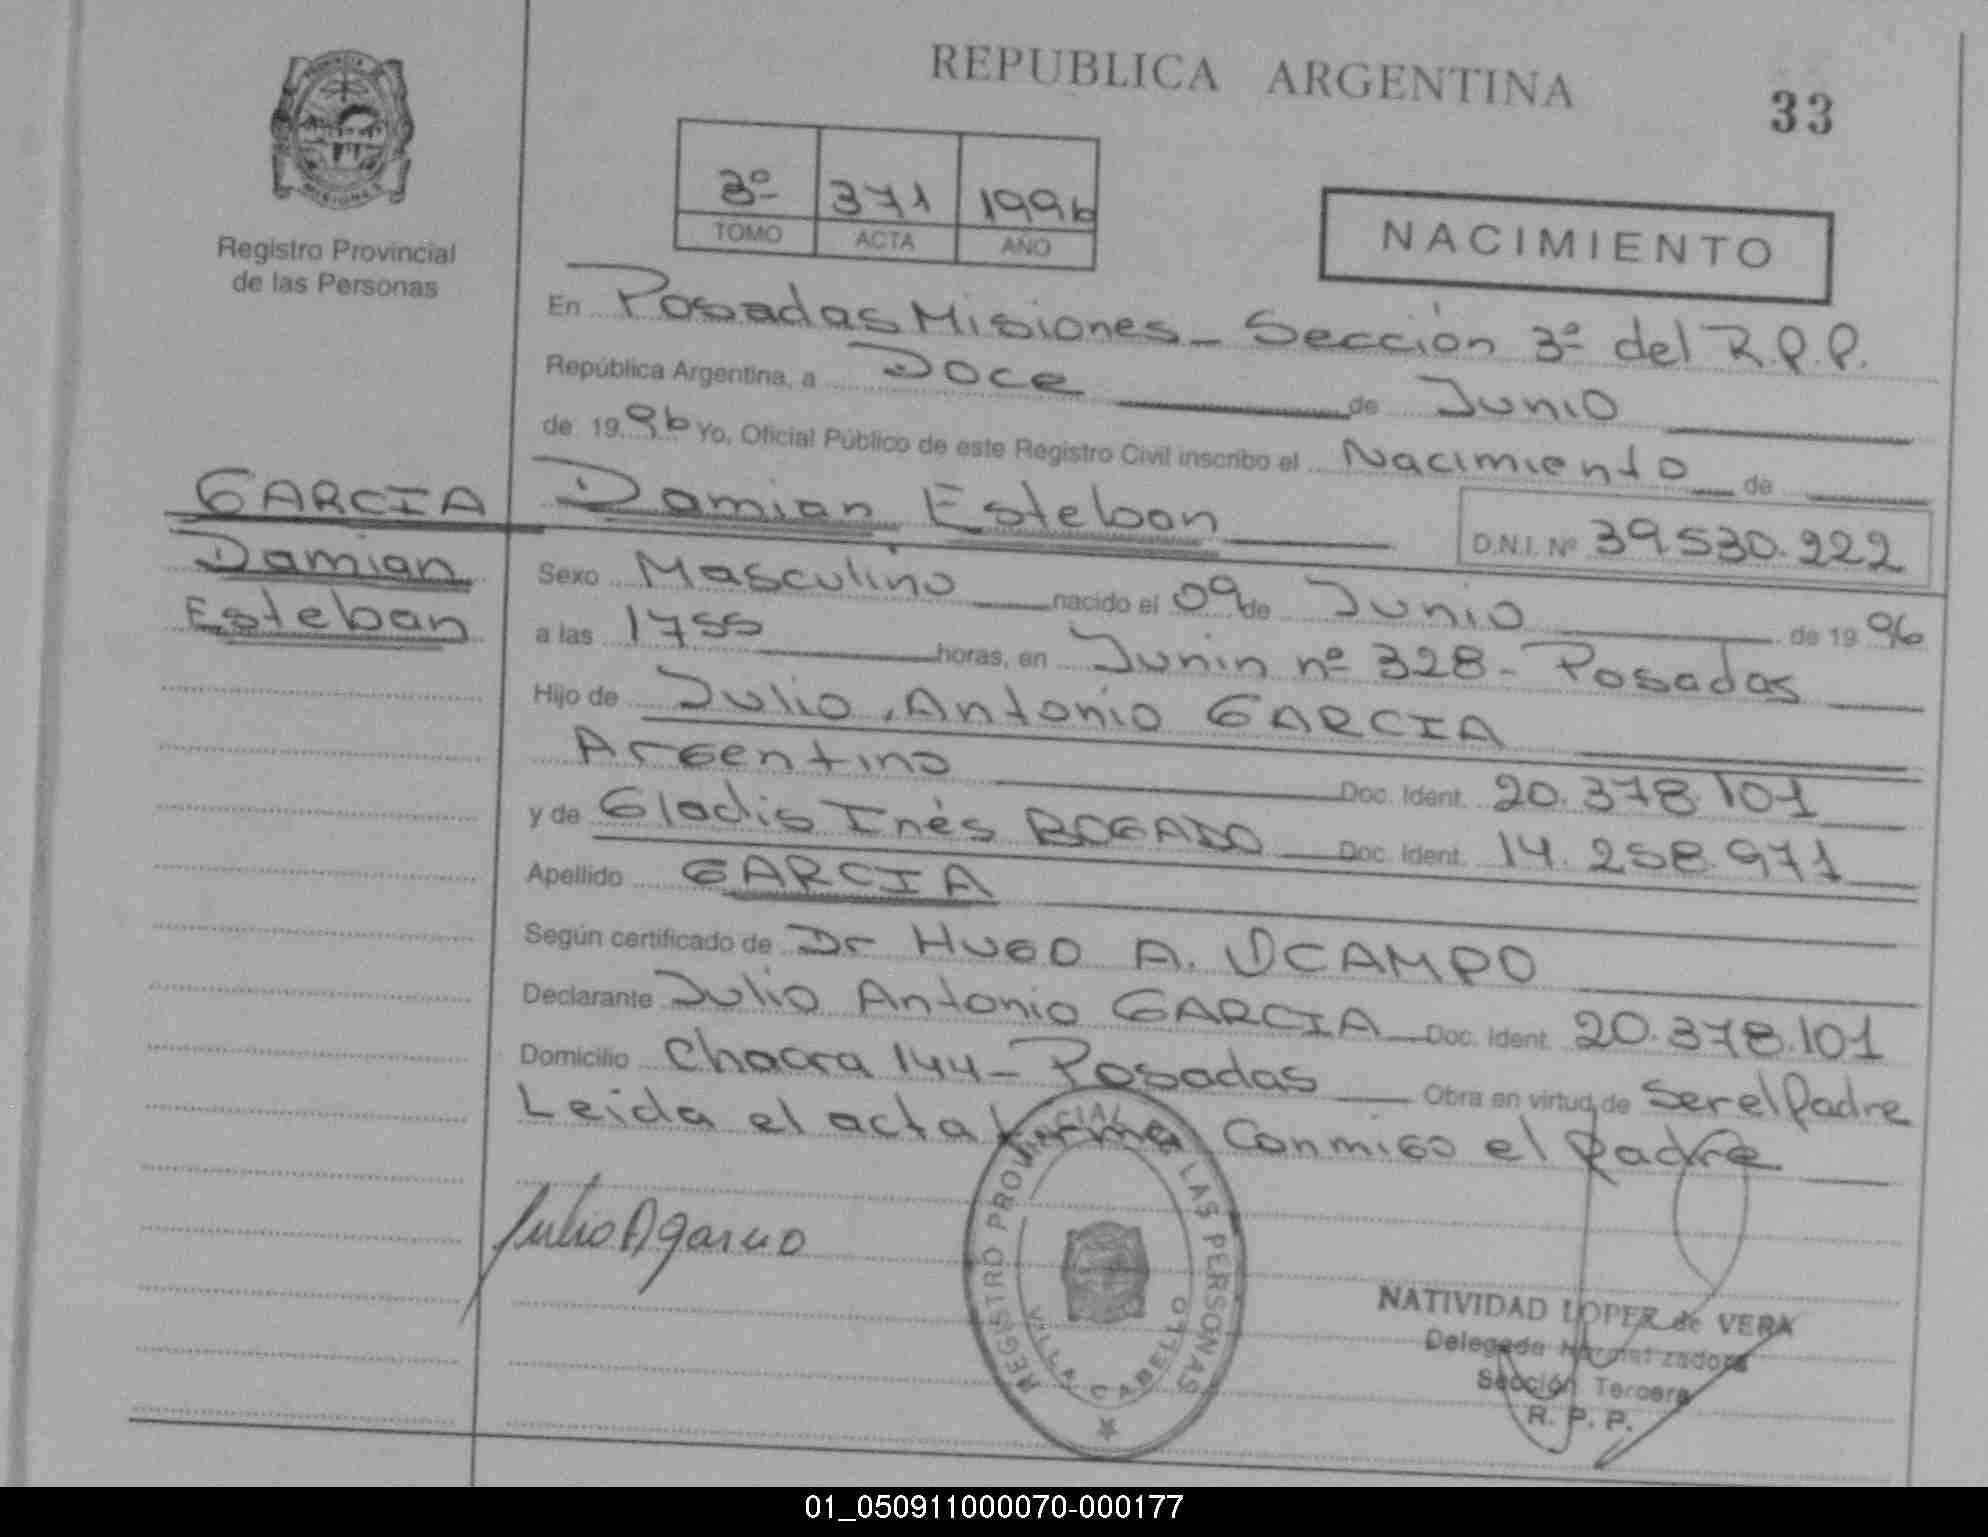 REPUBLICA ARGENTINA
33
PROVINCIA
MISIONES
Registro Provincial
de las Personas
3º 371 1996
TOMO ACTA AÑO
NACIMIENTO
En Posadas Misiones - Sección 3ª del R.P.P.
República Argentina, a Doce de Junio
de 1996 Yo, Oficial Público de este Registro Civil inscribo el Nacimiento de
GARCIA Damian Esteban
D.N.I. Nº 39.530.222
Damian
Esteban
Sexo Masculino nacido el 09 de Junio de 1996
a las 1755 horas, en Junin nº 328 - Posadas
Hijo de Julio Antonio GARCIA
Argentino Doc. Ident. 20.378.101
y de Gladis Inés BOGADO Doc. Ident. 14.258.971
Apellido GARCIA
Según certificado de Dr HUGO A. OCAMPO
Declarante Julio Antonio GARCIA Doc. Ident. 20.378.101
Domicilio Chacra 144 - Posadas Obra en virtud de Ser el Padre
Leida el acta firma Conmigo el Padre
Julio A Garcia
REGISTRO PROVINCIAL LAS PERSONAS
VILLA CABELLO
NATIVIDAD LOPEZ de VERA
Delegada Normalizadora
Sección Tercera
R. P. P.
01_050911000070-000177